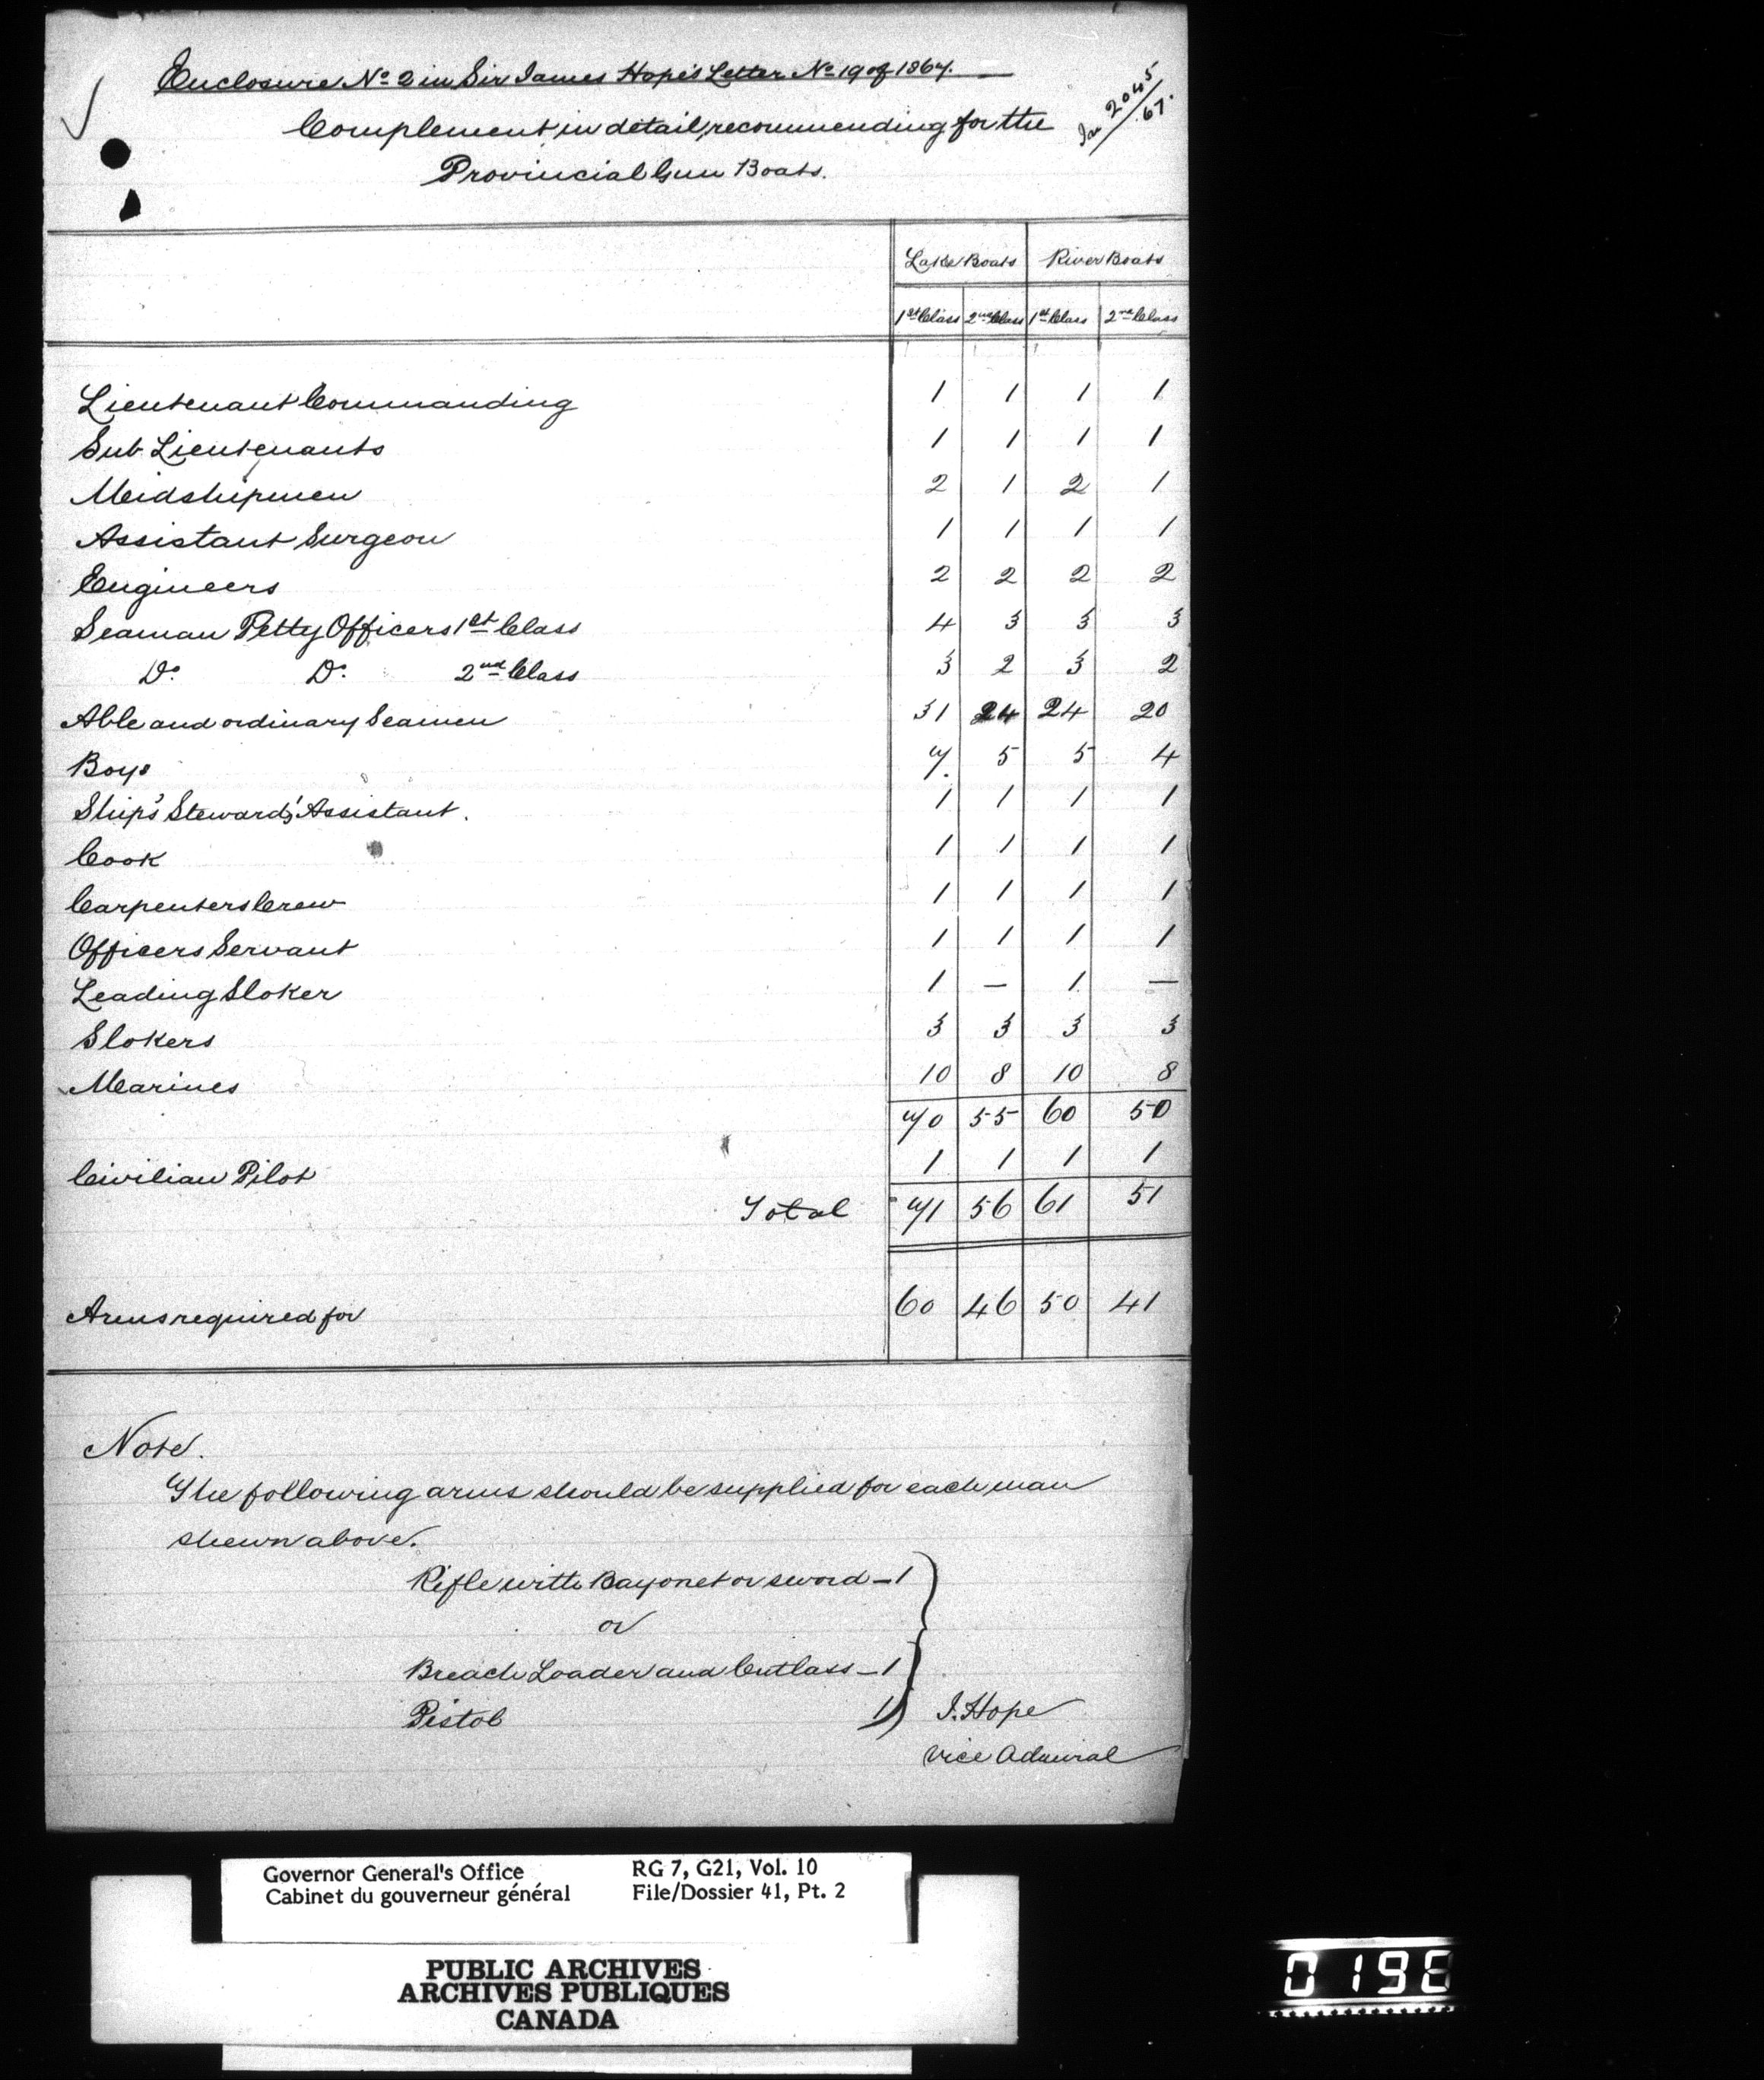 Enclosure No 2 in Sir James Hope's Letter No 19 of 1867.
2045
/67.
Complement, in detail, recommending for the
Provincial Gun Boats.
Lake Boats River Boats
1st Class 2nd Class 1st Class 2nd Class
Lieutenant Commanding 1 1 1 1
Sub Lieutenants 1 1 1 1
Midshipmen 2 1 2 1
Assistant Surgeon 1 1 1 1
Engineers 2 2 2 2
Seaman Petty Officers 1st Class 4 3 3 3
Do. Do. 2nd Class 3 2 3 2
Able and ordinary Seamen 31 24 24 20
Boys 7. 5 5 4
Ship's Steward's Assistant. 1 1 1 1
Cook 1 1 1 1
Carpenters Crew 1 1 1 1
Officers Servant 1 1 1 1
Leading Stoker 1 — 1 —
Stokers 3 3 3 3
Marines 10 8 10 8
70 55 60 50
Civilian Pilot 1 1 1 1
Total 71 56 61 51
Arms required for 60 46 50 41
Note.
The following arms should be supplied for each man
shewn above.
Rifle with Bayonet or sword – 1
or
Breach Loader and Cutlass – 1
Pistol 1
J. Hope
Vice Admiral
Governor General's Office RG 7, G21, Vol. 10
Cabinet du gouverneur général File/Dossier 41, Pt. 2
PUBLIC ARCHIVES
ARCHIVES PUBLIQUES
CANADA